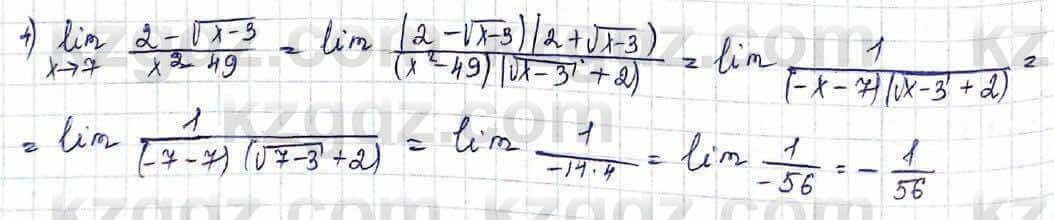 4) lim x→7 (2 - √(x-3)) / (x² - 49) = lim ((2 - √(x-3))(2 + √(x-3))) / ((x² - 49)(√(x-3) + 2)) = lim 1 / ((-x-7)(√(x-3) + 2)) =
= lim 1 / ((-7-7)(√(7-3) + 2)) = lim 1 / (-14·4) = lim 1 / (-56) = - 1/56